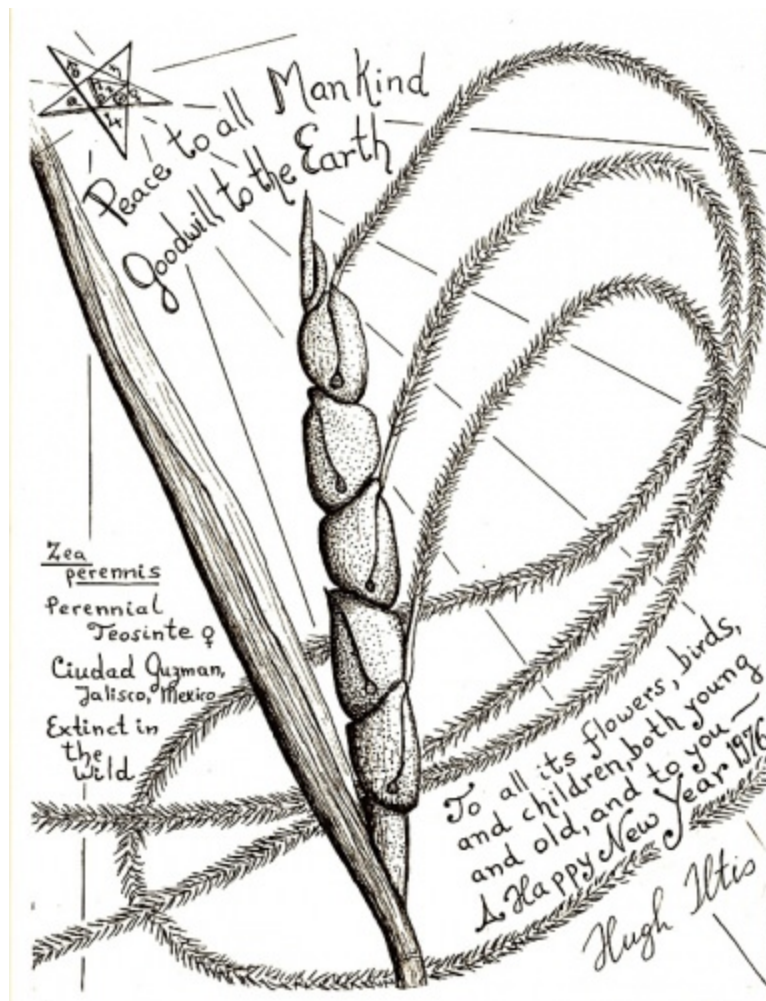 Peace to all Mankind
Goodwill to the Earth
Zea
perennis
Perennial
Teosinte ♀
Ciudad Guzman,
Jalisco, Mexico
Extinct in
the
wild
To all its flowers, birds,
and children, both young
and old, and to you —
A Happy New Year 1976
Hugh Iltis